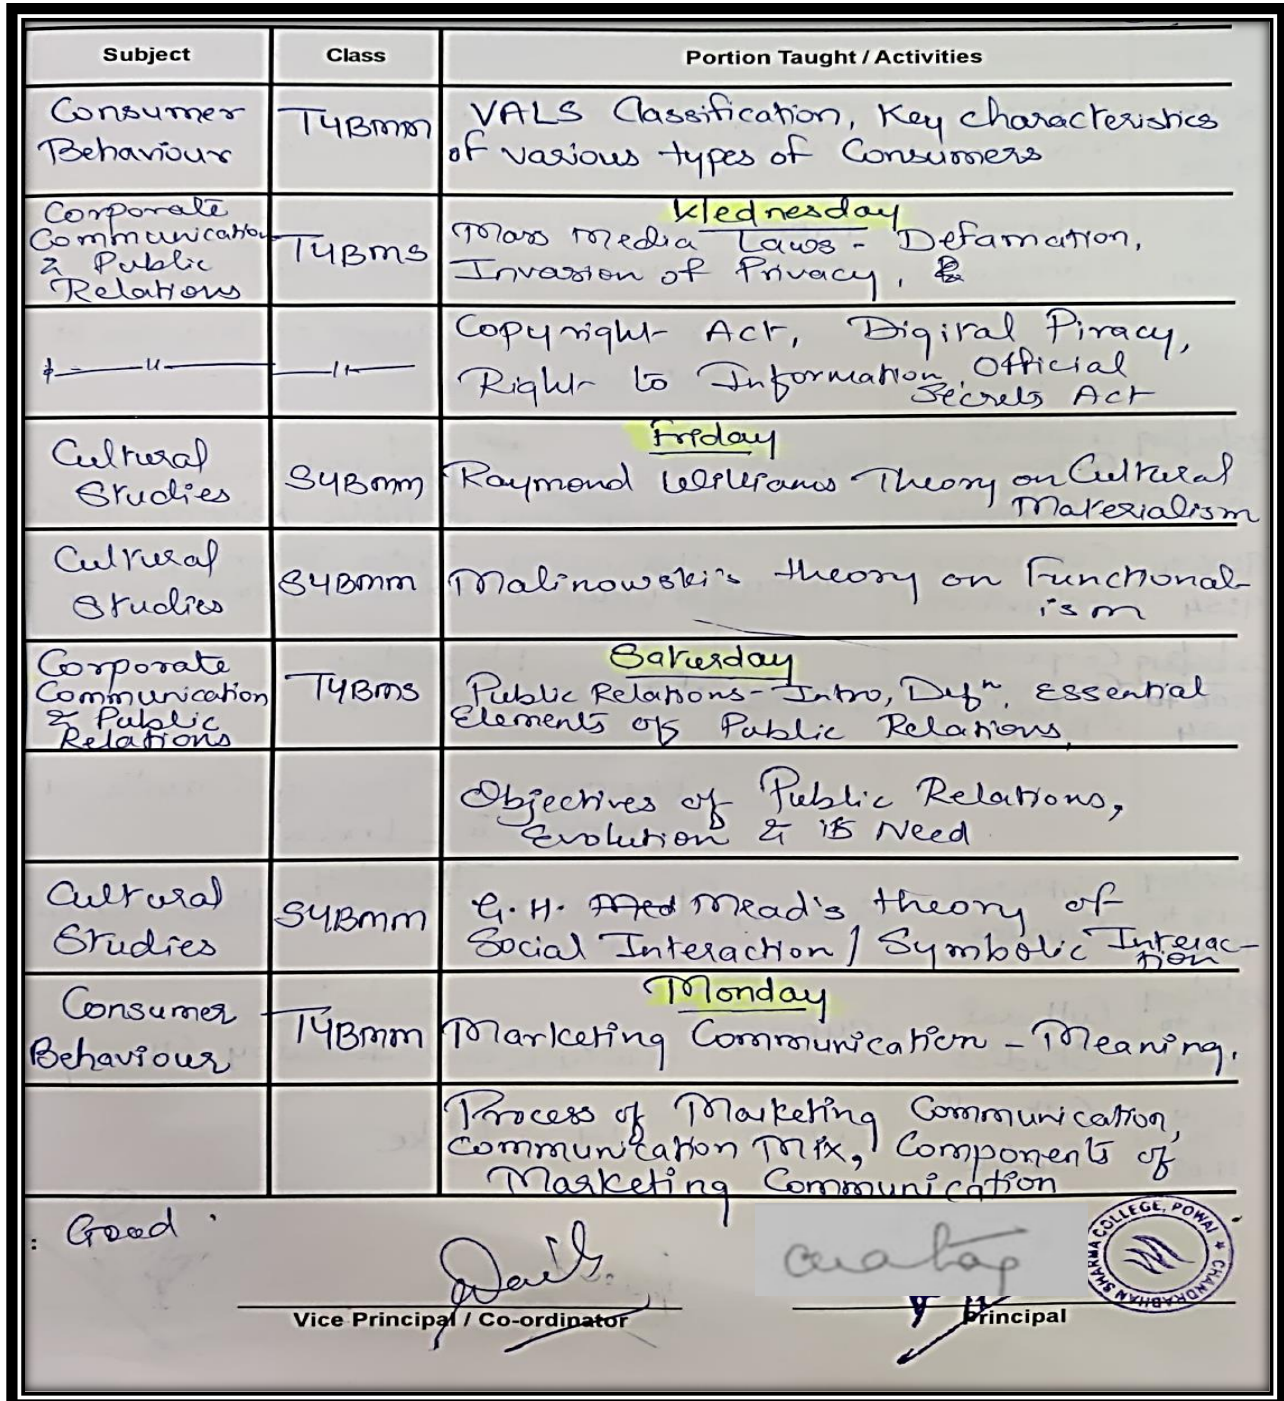 Subject Class Portion Taught / Activities
Consumer Behaviour TYBMM VALS Classification, Key characteristics
of various types of Consumers
Wednesday
Corporate Communication & Public Relations TYBMS Mass Media Laws - Defamation,
Invasion of Privacy,
— 〃 — — 〃 — Copyright Act, Digital Piracy,
Right to Information, Official
Secrets Act
Friday
Cultural Studies SYBMM Raymond Williams Theory on Cultural
Materialism
Cultural Studies SYBMM Malinowski's theory on Functional-
ism
Saturday
Corporate Communication & Public Relations TYBMS Public Relations - Intro, Defⁿ, Essential
Elements of Public Relations,
Objectives of Public Relations,
Evolution & its Need
Cultural Studies SYBMM G. H. Mead's theory of
Social Interaction / Symbolic Interac-
tion
Monday
Consumer Behaviour TYBMM Marketing Communication - Meaning,
Process of Marketing Communication,
Communication Mix, Components of
Marketing Communication
: Good .
Vice Principal / Co-ordinator Principal
CHANDRABHAN SHARMA COLLEGE, POWAI